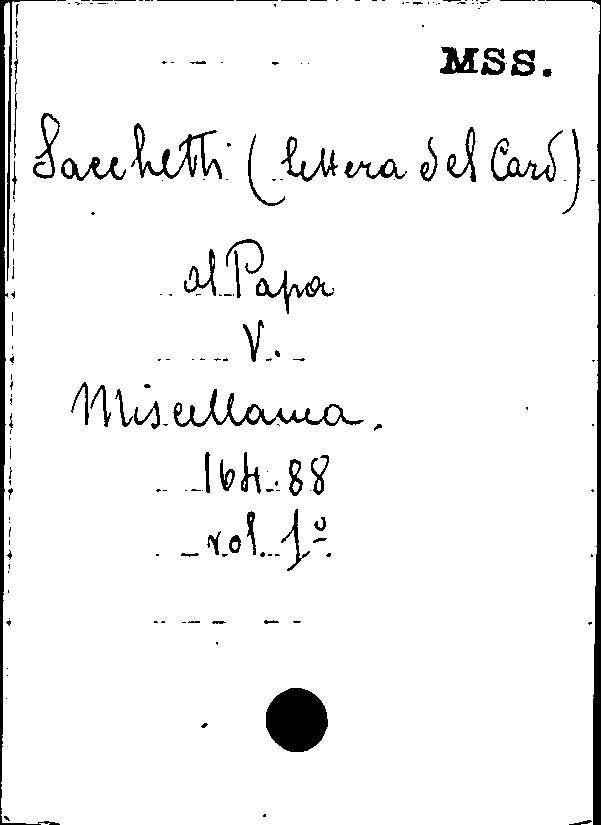 MSS.
Sacchetti (lettera del Card)
al Papa
V.
Miscellanea.
164.88
vol. 1º